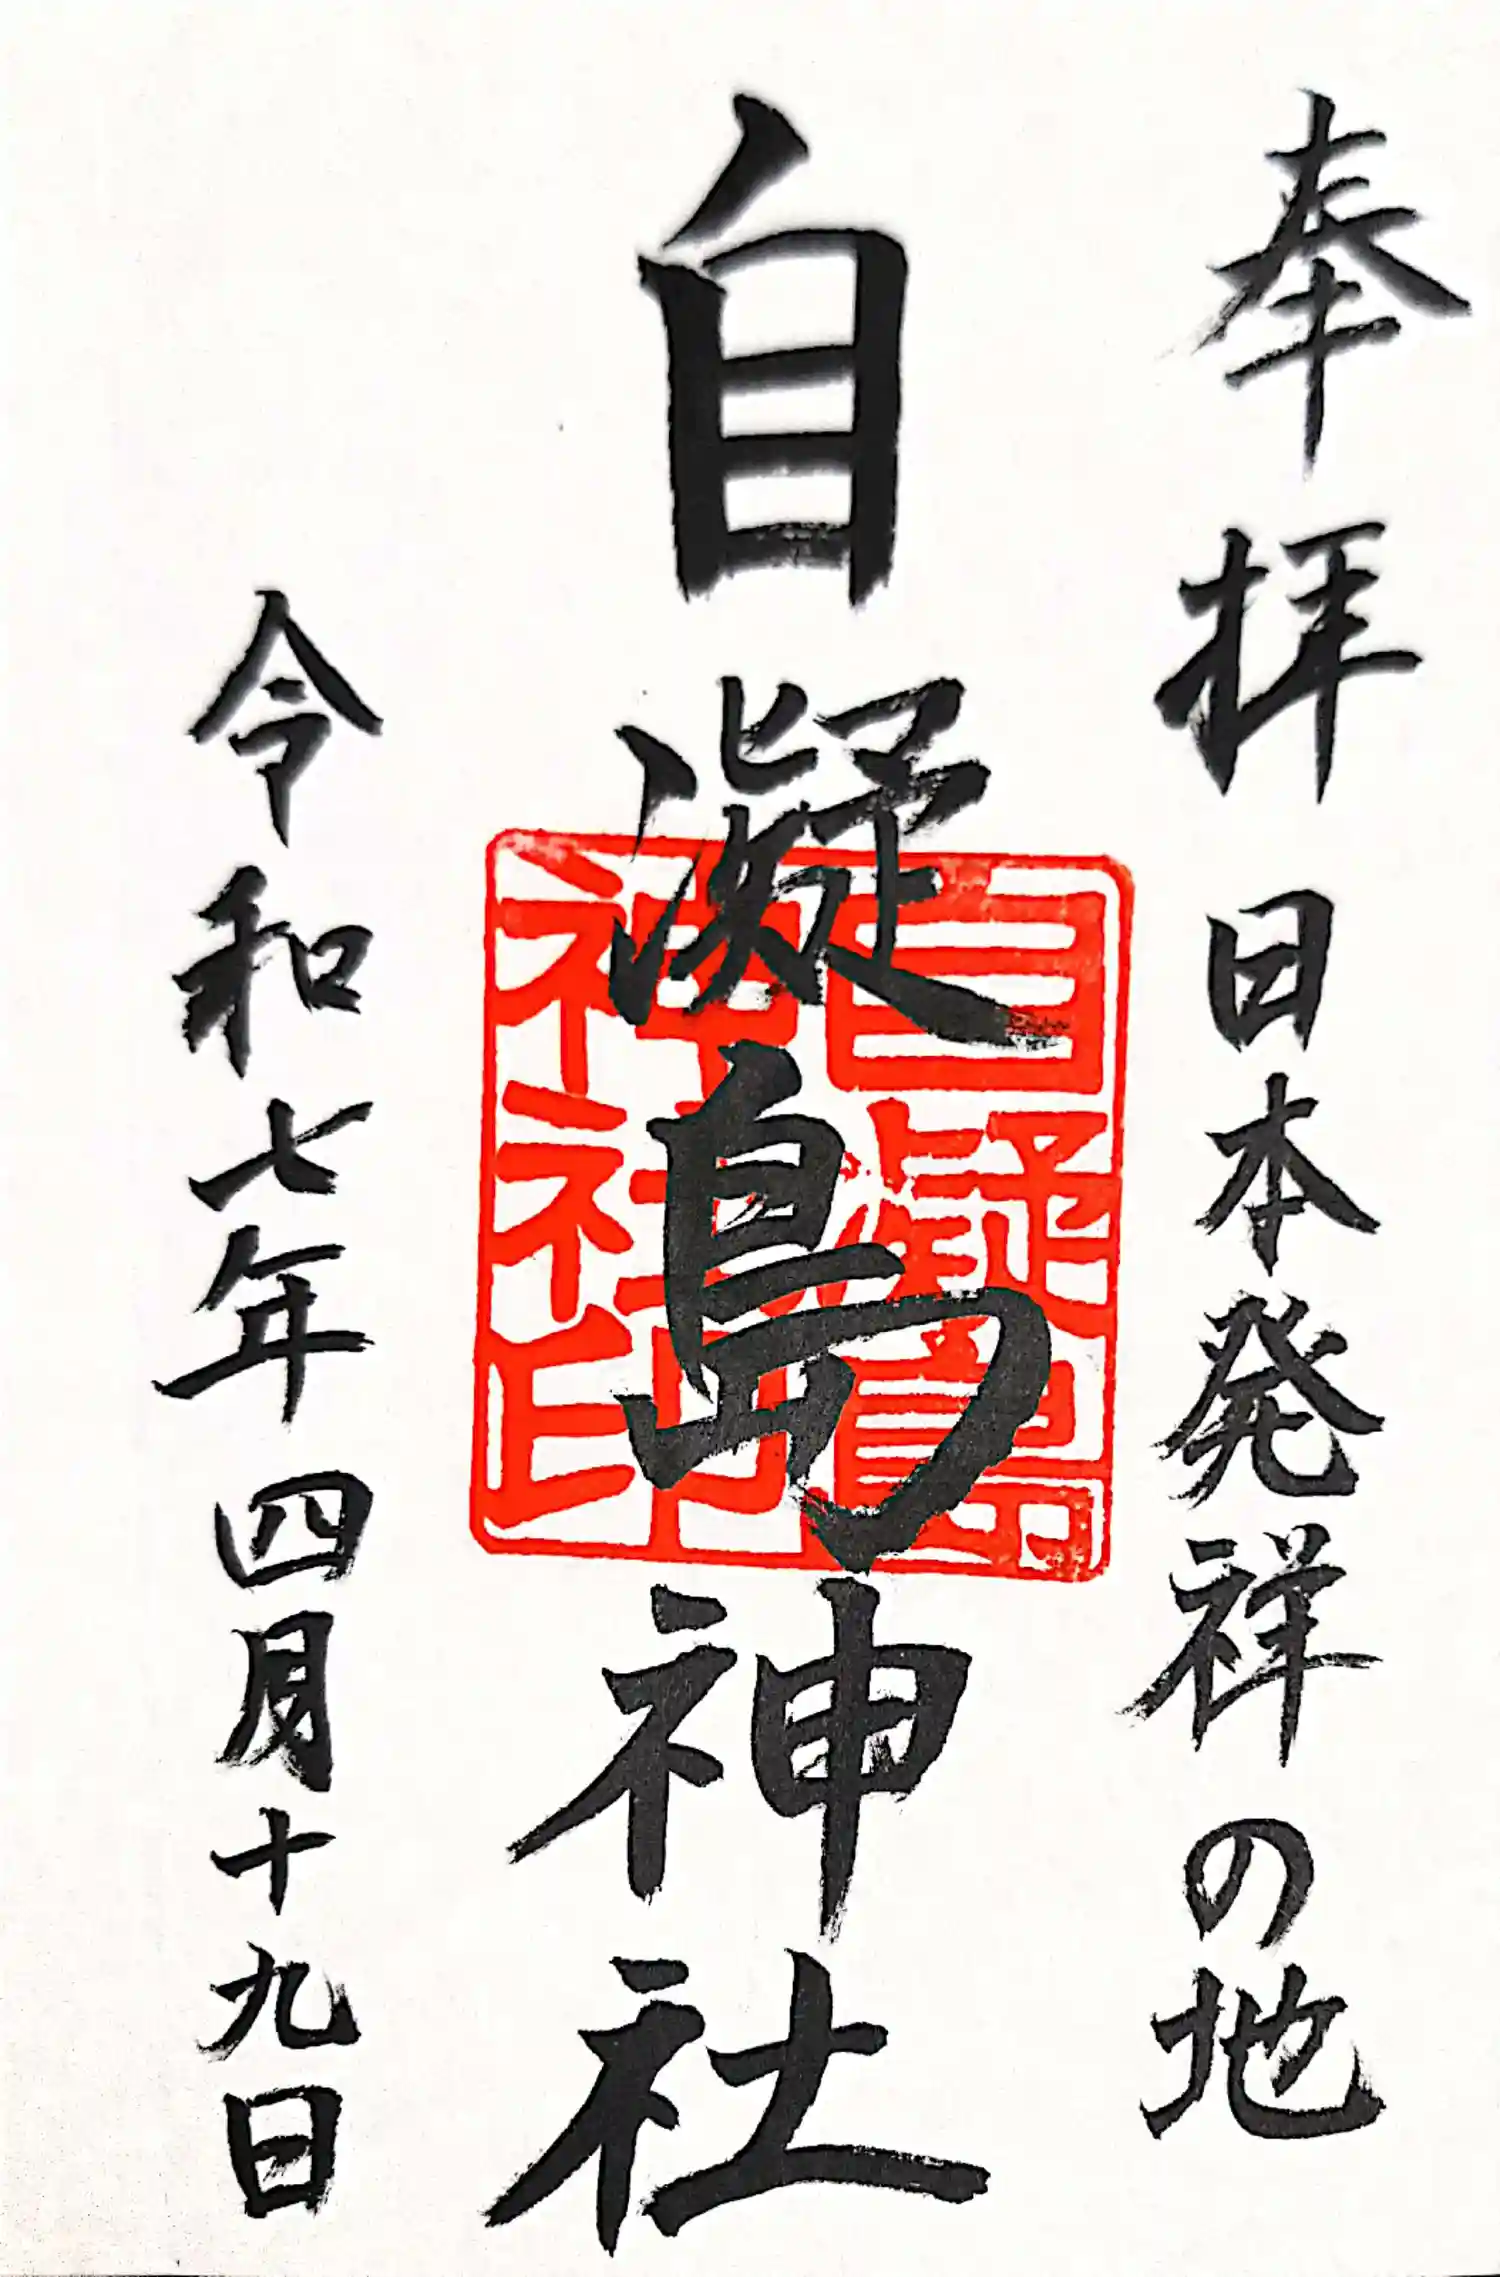 奉拝 日本発祥の地
自凝島神社
自凝島
神社印
令和七年四月十九日